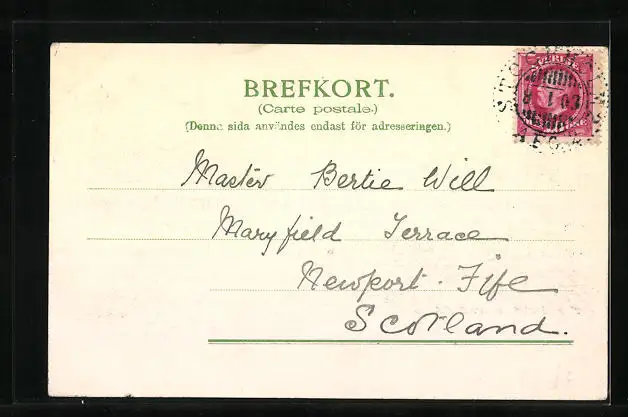 BREFKORT.
(Carte postale.)
(Denna sida användes endast för adresseringen.)
Master Bertie Will
Maryfield Terrace
Newport. Fife
Scotland.